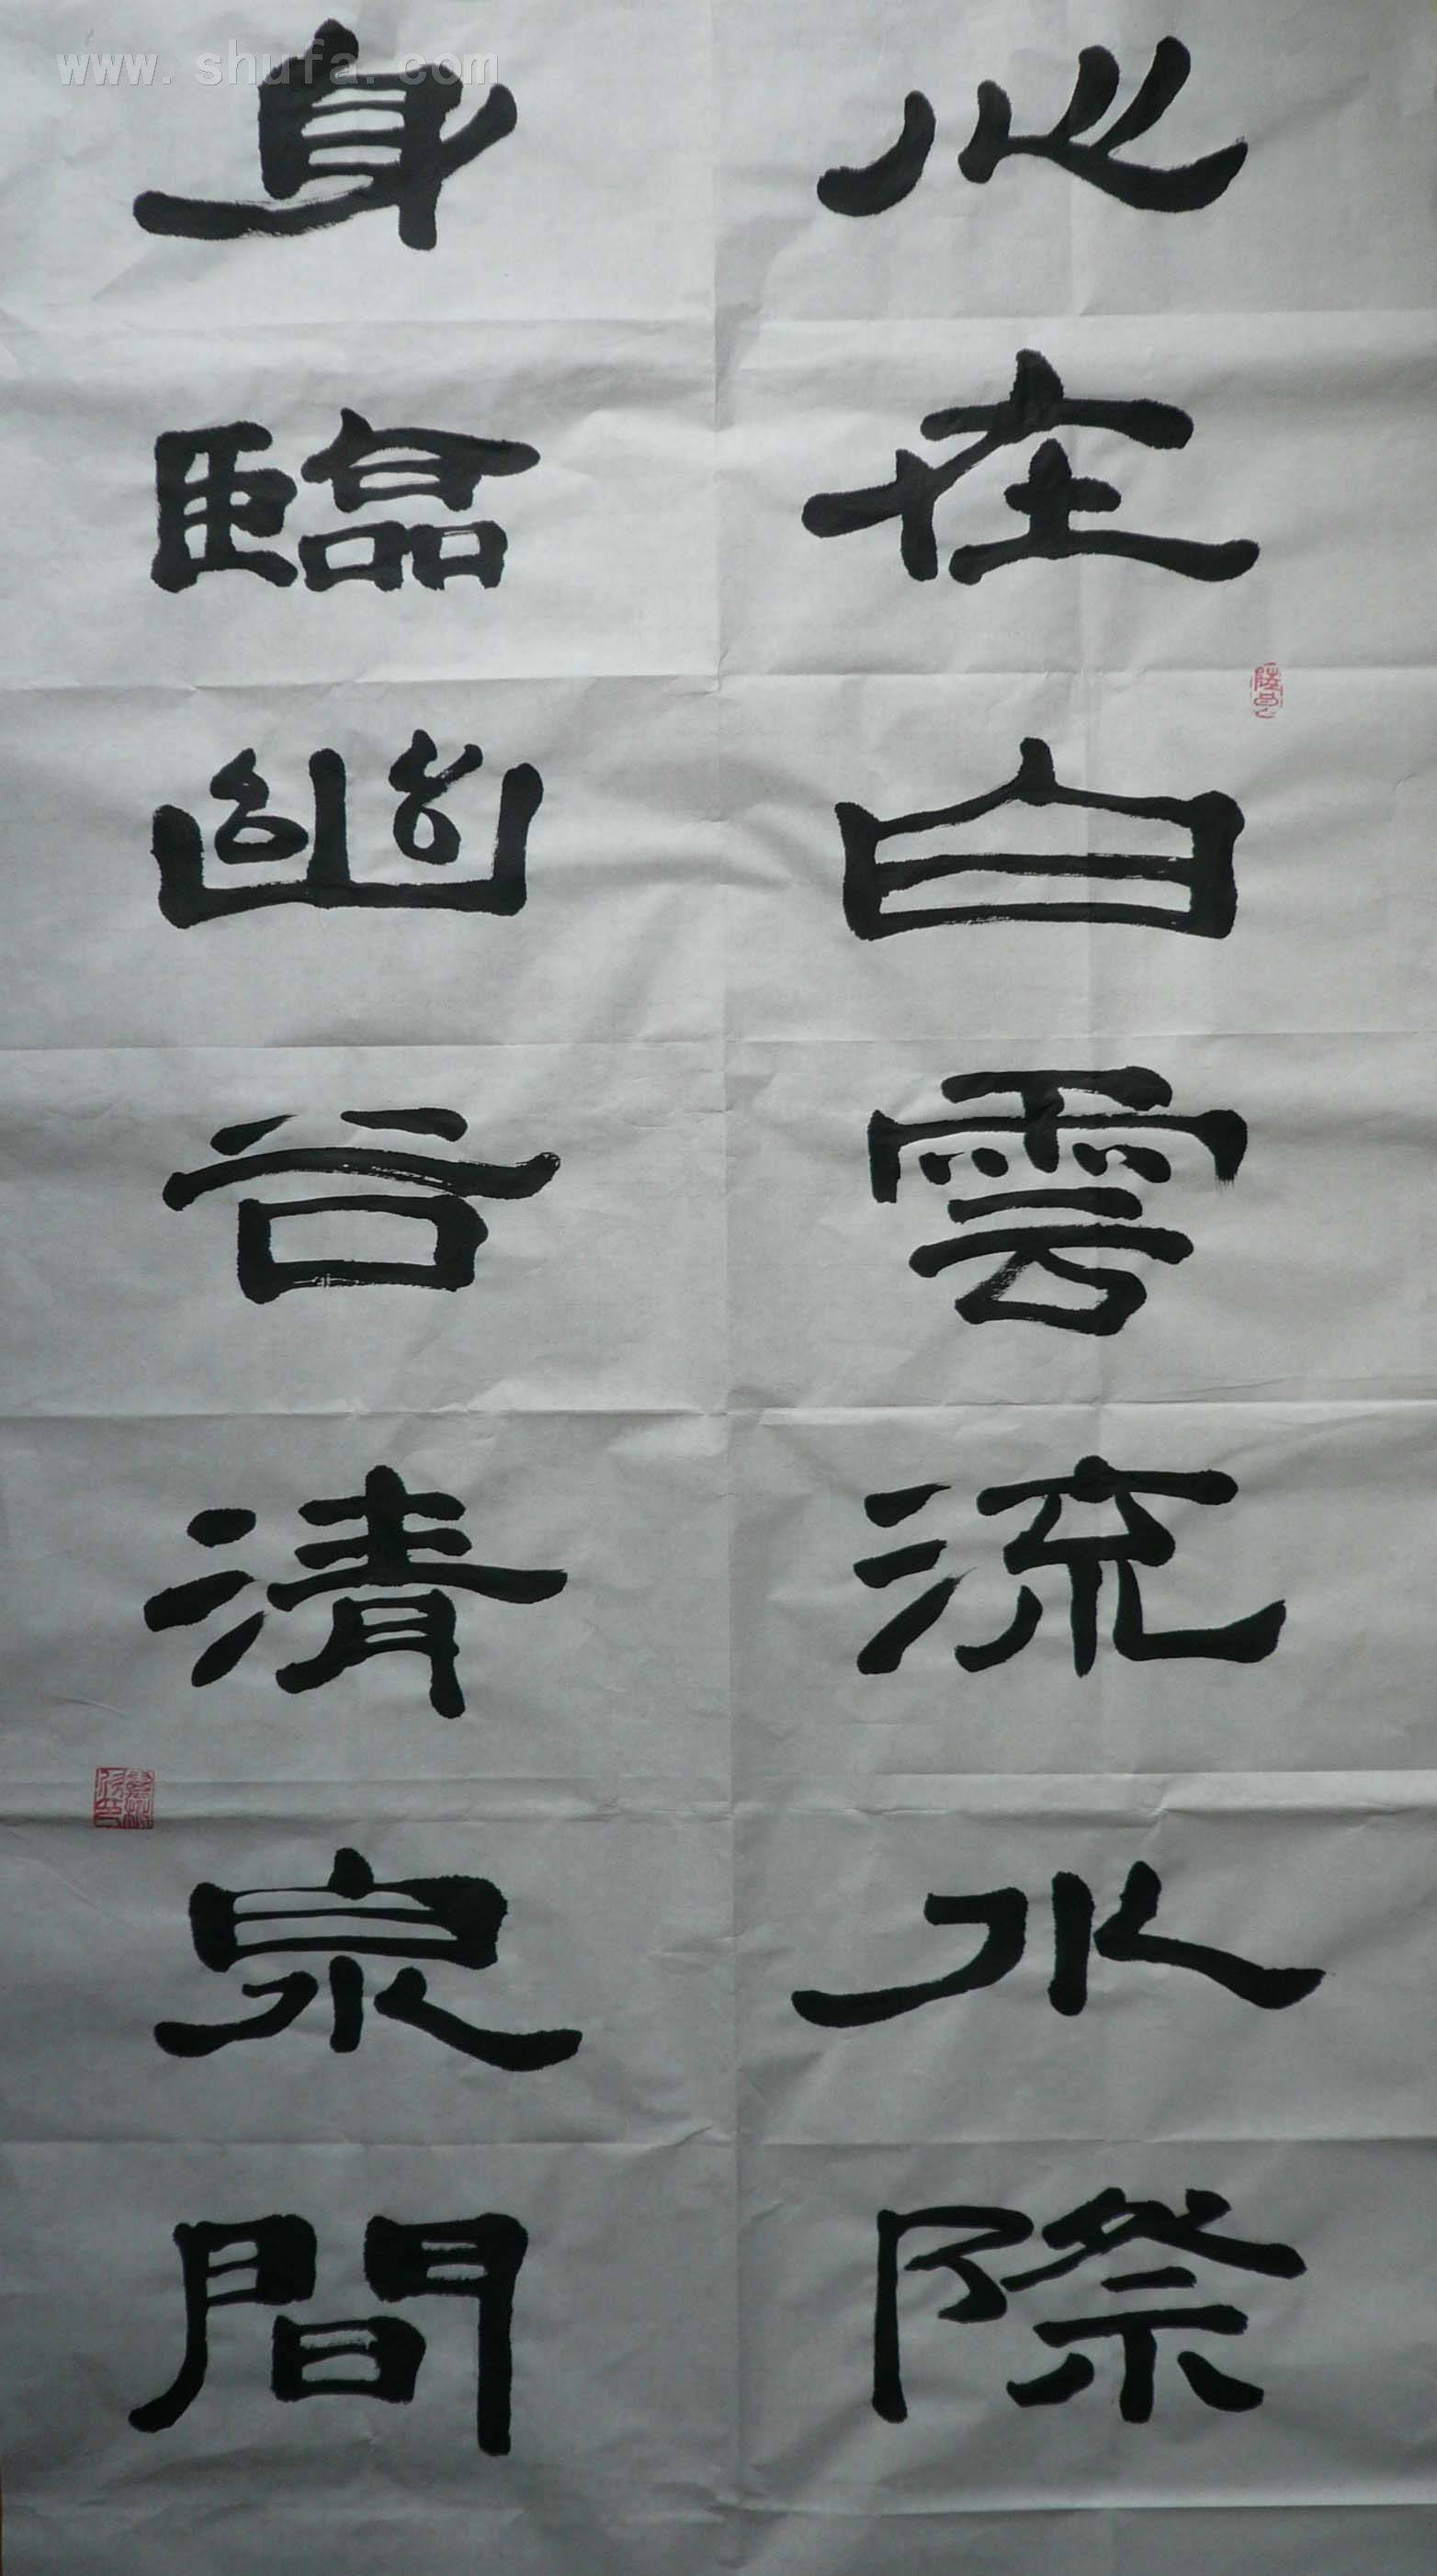 心在白雲流水際
身臨幽谷清泉間
www.shufa.com